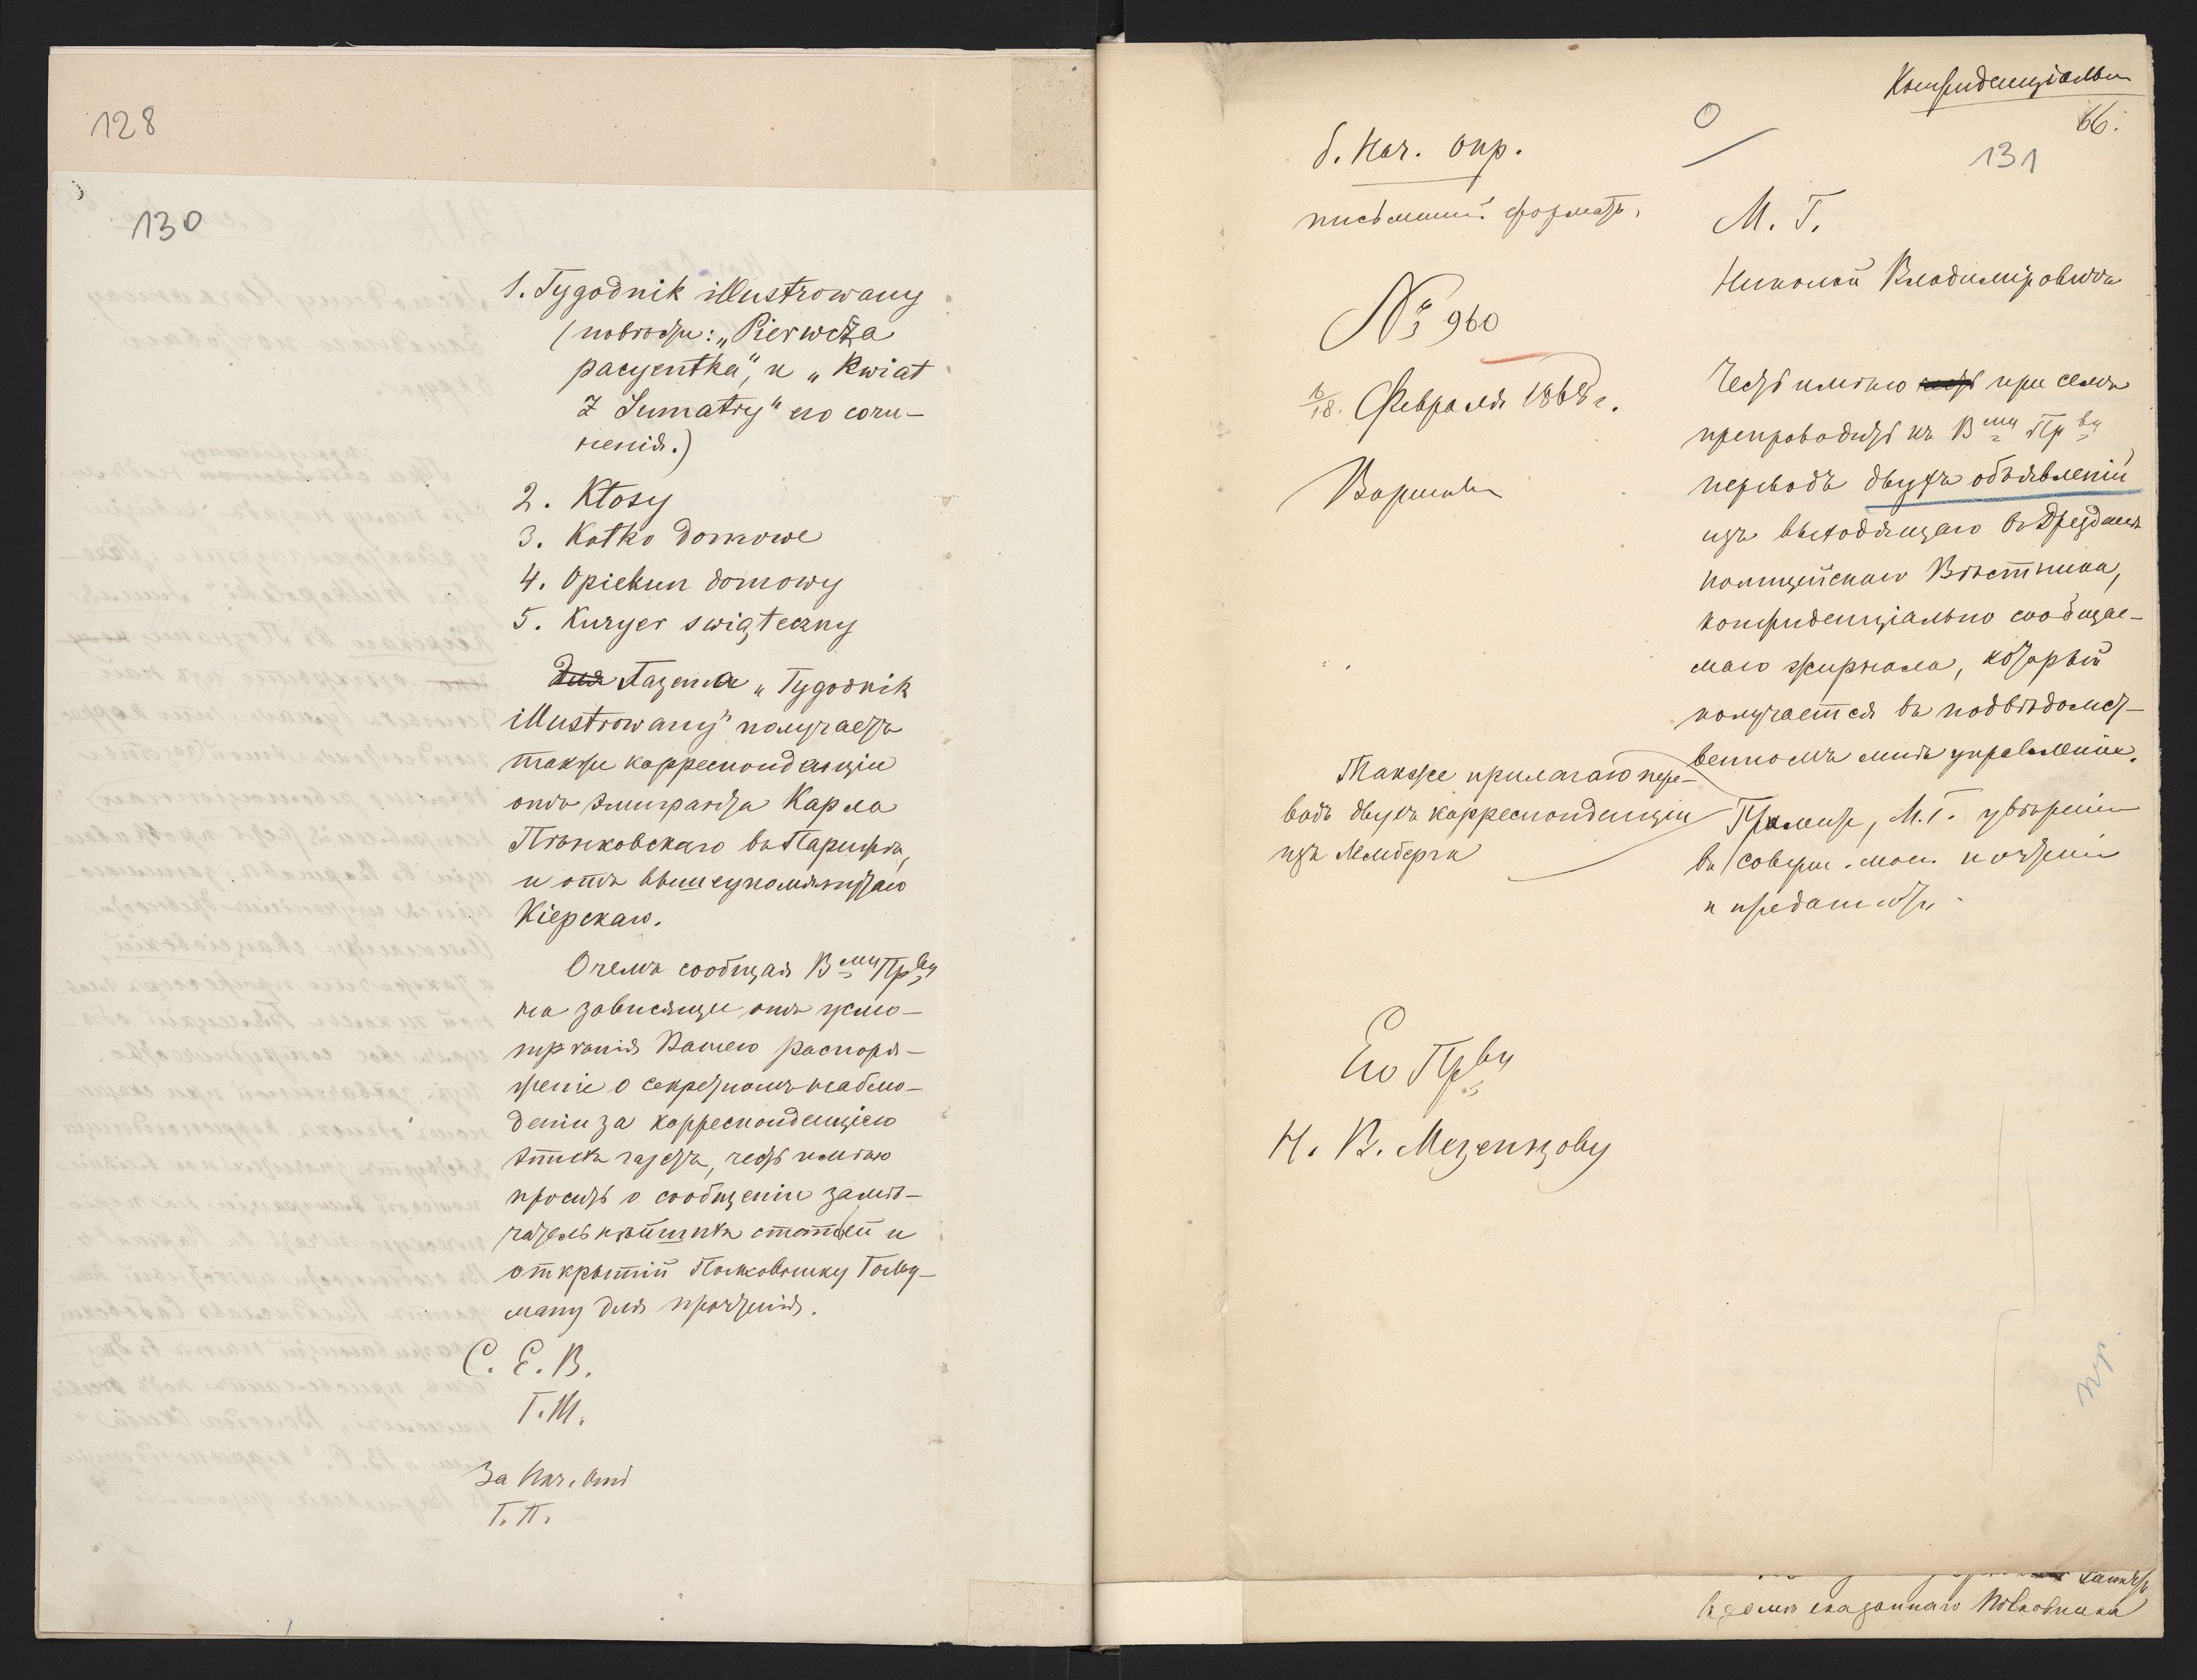 128
130
1. Tygodnik illustrowany
(повѣсти: „Pierwsza
pacyentka“, и „Kwiat
z Sumatry“ его сочи-
ненія.)
2. Kłosy
3. Kółko domowe
4. Opiekun domowy
5. Kuryer swiąteczny
Для Газета „Tygodnik
illustrowany“ получаетъ
также корреспонденціи
отъ эмигранта Карла
Пѣнковскаго въ Парижѣ,
и отъ вышеупомянутаго
Кіерскаго.
О чемъ сообщая Вему Прву
на зависящее отъ усмо-
трѣнія Вашего распоря-
женіе о секретномъ наблю-
деніи за корреспонденціею
этихъ газетъ, честь имѣю
просить о сообщеніи замѣ-
чательнѣйшихъ статей и
открытій Полковнику
для прочтенія.
С. Е. В.
Г. М.
За Нач. Отд
Г. П.
Конфиденціально
66.
131
О
б. Нач. Окр.
письменный форматъ.
№ 960
6/18. Февраля 1868 г.
Варшава
М. Г.
Николай Владиміровичъ
Честь имѣю честь при семъ
препроводить къ Вему Прву
переводъ двухъ объявленій
изъ выходящаго въ Дрезденѣ
полицейскаго Вѣстника,
конфиденціально сообщае-
маго журнала, который
получается въ подвѣдомст-
венномъ мнѣ управленіи.
Также прилагаю пере-
водъ двухъ корреспонденціи
изъ Лемберга
Примите, М. Г. увѣреніе
въ соверш. моем. почтеніи
и преданности.
Его Прву
Н. В. Мезенцову
сказаннаго Полковника